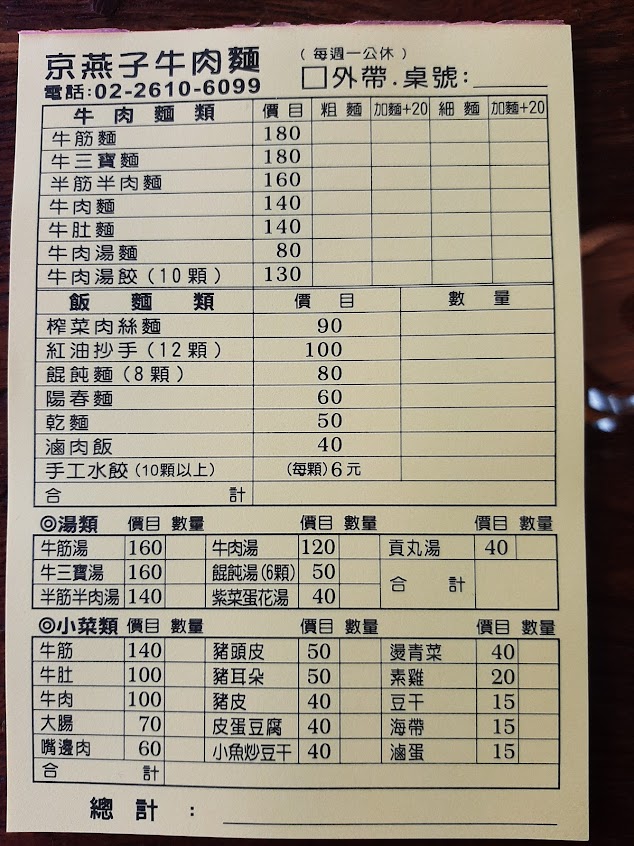 京燕子牛肉麵
(每週一公休)
電話:02-2610-6099 □外帶.桌號:
牛肉麵類 價目 粗麵 加麵+20 細麵 加麵+20
牛筋麵 180
牛三寶麵 180
半筋半肉麵 160
牛肉麵 140
牛肚麵 140
牛肉湯麵 80
牛肉湯餃(10顆) 130
飯麵類 價目 數量
榨菜肉絲麵 90
紅油抄手(12顆) 100
餛飩麵(8顆) 80
陽春麵 60
乾麵 50
滷肉飯 40
手工水餃(10顆以上) (每顆)6元
合計
◎湯類 價目 數量 價目 數量 價目 數量
牛筋湯 160 牛肉湯 120 貢丸湯 40
牛三寶湯 160 餛飩湯(6顆) 50 合計
半筋半肉湯 140 紫菜蛋花湯 40
◎小菜類 價目 數量 價目 數量 價目 數量
牛筋 140 豬頭皮 50 燙青菜 40
牛肚 100 豬耳朵 50 素雞 20
牛肉 100 豬皮 40 豆干 15
大腸 70 皮蛋豆腐 40 海帶 15
嘴邊肉 60 小魚炒豆干 40 滷蛋 15
合計
總計: